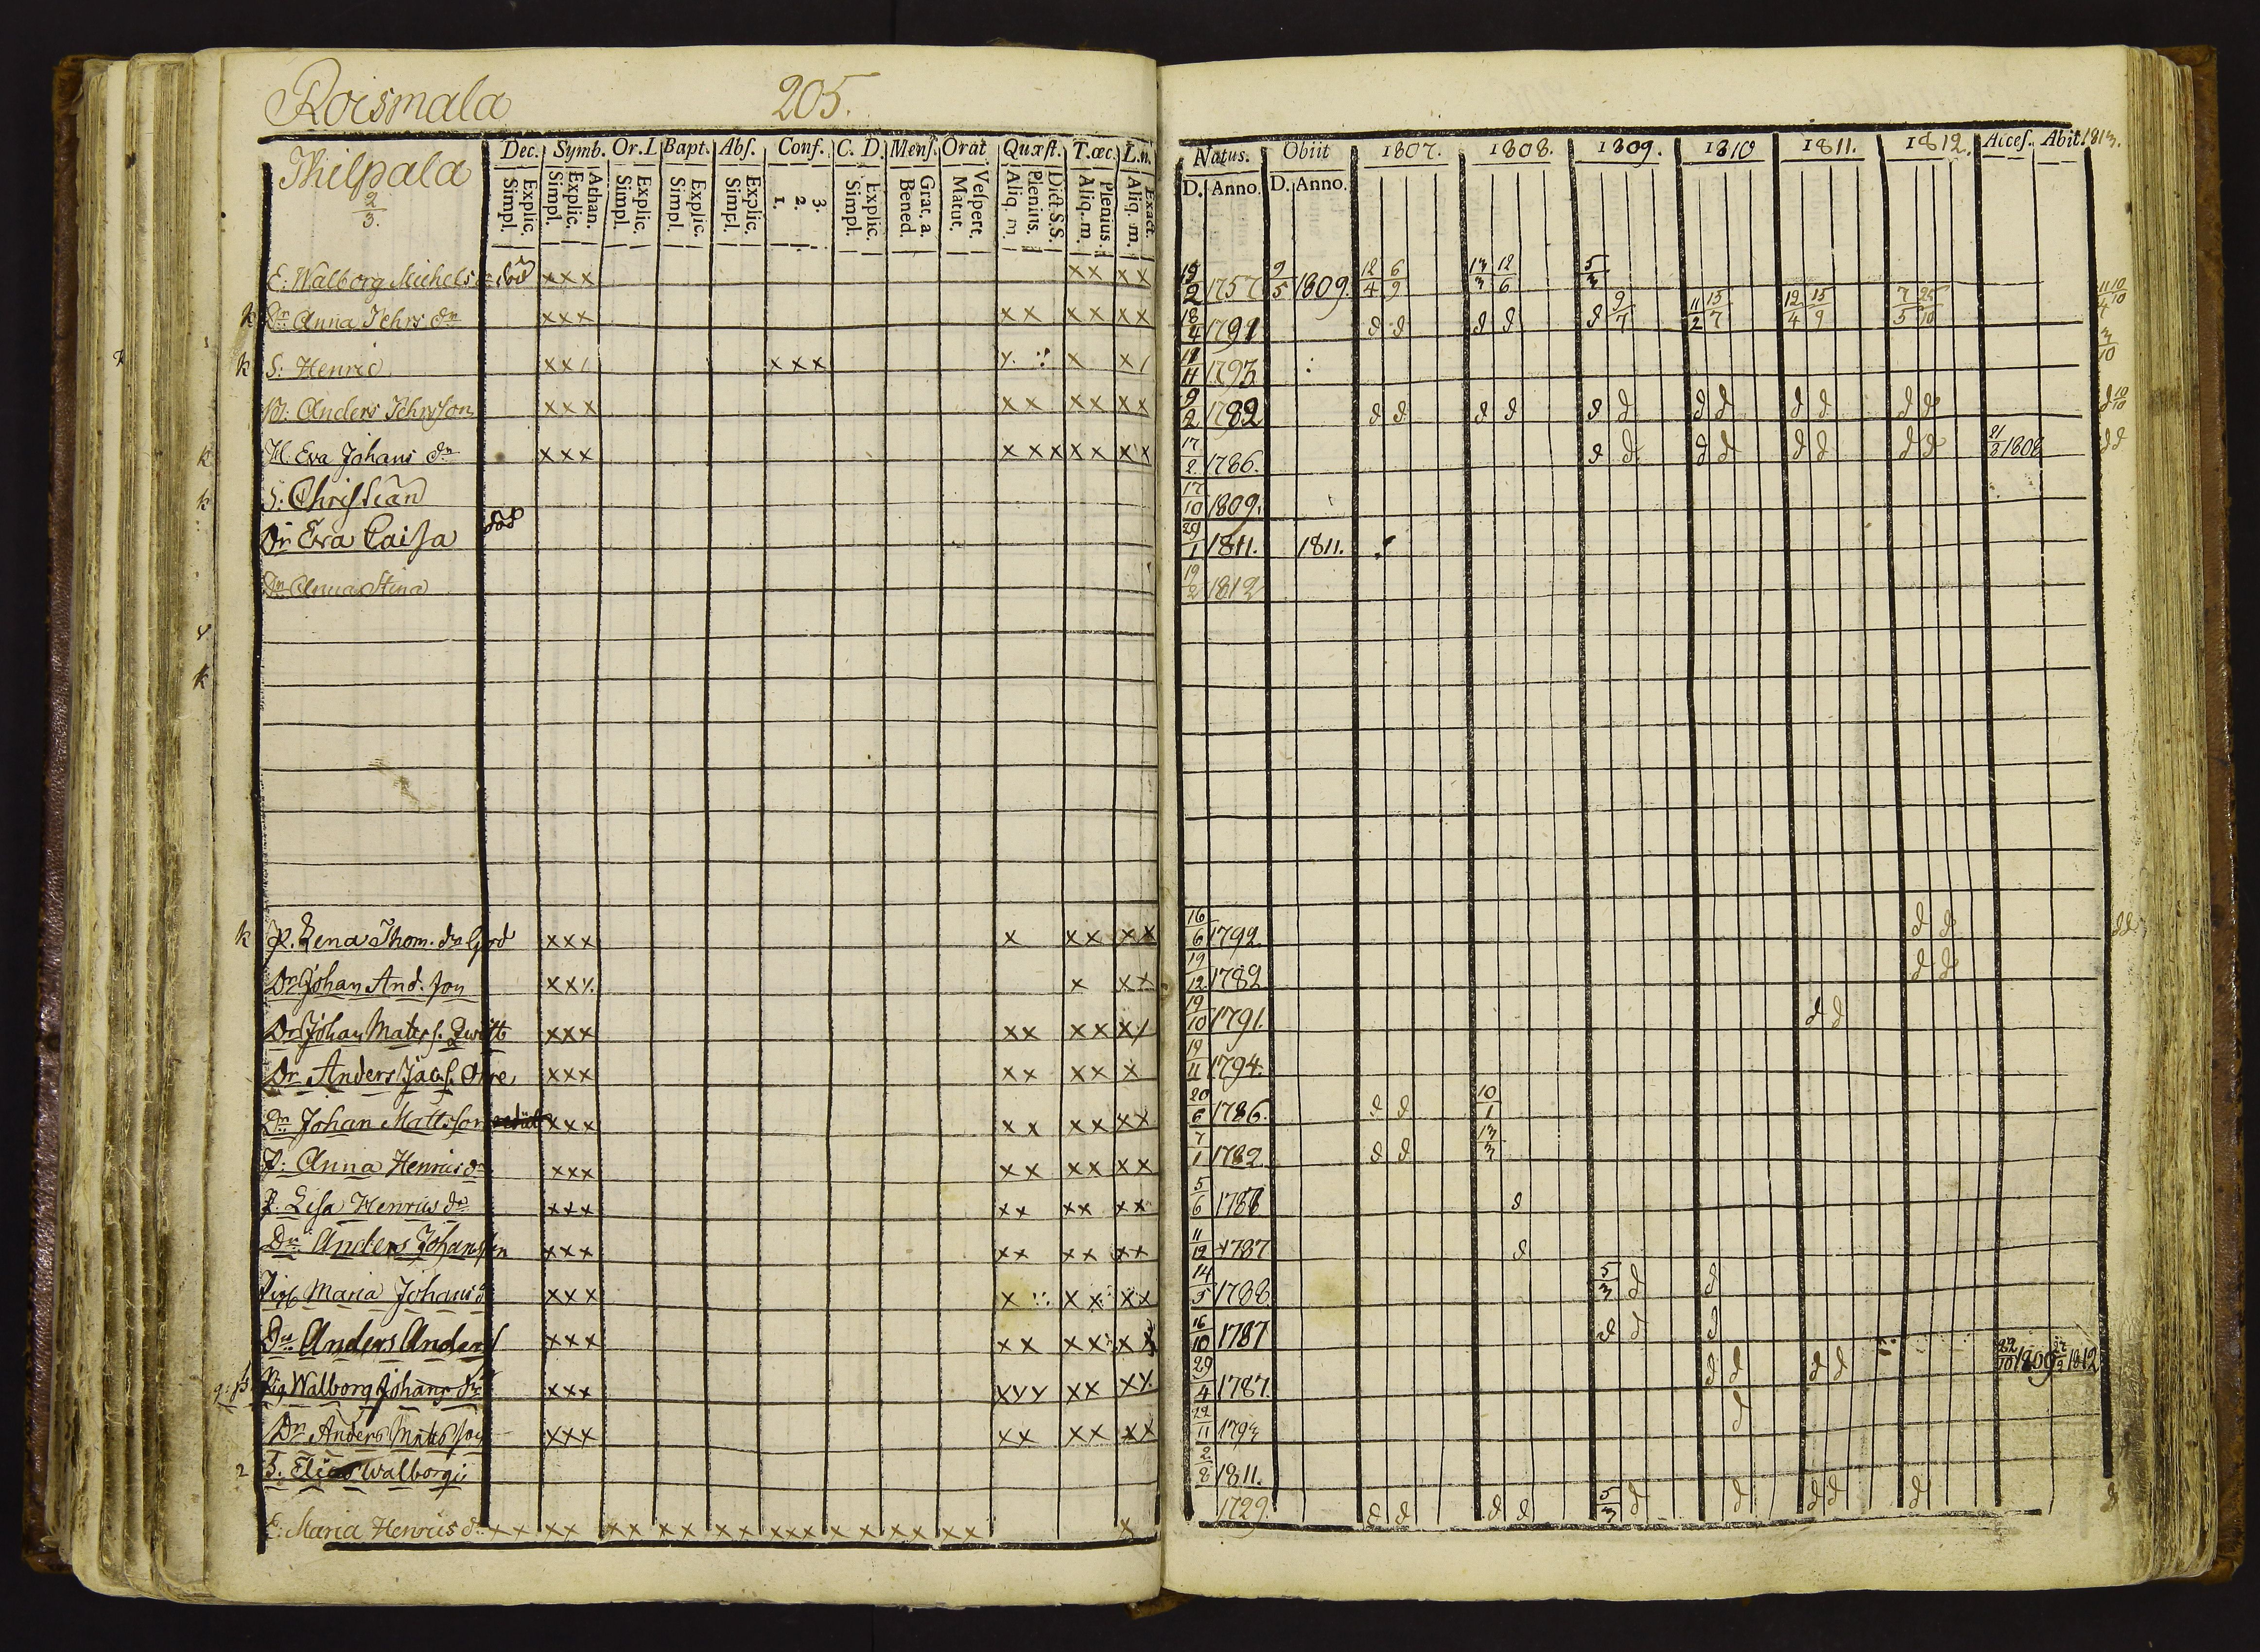 Roismala 205.
Thilpala
2/3.
Dec. Symb. Or. I. Bapt. Abs. Conf. C. D. Mens. Orat. Quæst. T. œc. L. n.
Explic. Simpl. Athan. Explic. Simpl. Explic. Simpl. Explic. Simpl. Explic. Simpl. 3. 2. 1. Explic. Simpl. Grat. a. Bened. Vespert. Matut. Dict. S.S. Plenius. Aliq. m. Plenius. Aliq. m. Exact. Aliq. m.
Natus. Obiit 1807. 1808. 1809. 1810 1811. 1812. Acces. Abit. 1813.
D. Anno. D. Anno.
E: Walborg Michels dr död xxx xx xx 15/2 1757 9/5 1809. 12/4 6/9 13/3 12/6 5/3
k Dr Anna Jehrs dr xxx xx xx xx 18/4 1791 d d d d d 9/7 11/2 15/7 12/4 15/9 7/5 25/10 11/4 10/10
k S: Henric xx/ xxx x x x/ 11/11 1793 3/10
M: Anders Jehrsson xxx xx xx xx 9/2 1782 d d d d d d d d d d d d d 10/10
k H. Eva Johans dr xxx xxx xx xx 17/2 1786. d d d d d d d d 21/3 1808 d d
k S: Christian 17/10 1809.
Dr Eva Caisa död 29/1 1811. 1811.
Dr Anna Stina 19/2 1812
k
k P. Lena Thom. dr xxx x xx xx 16/6 1792 d d d d
Dr Johan And. son xxx x xx 19/12 1782 d d
Dr Johan Mats s. Qwist xxx xx xx x/ 19/10 1791. d d
Dr Anders Jac. s. Orre xxx xx xx x 19/11 1794.
Dr Johan Mattsson xxx xx xx xx 20/6 1786. d d 10/1
P: Anna Henrics dr xxx xx xx xx 7/1 1782 d d 13/3
P. Lisa Henrics dr xxx xx xx xx 5/6 1781 d
Dr Anders Johansson xxx xx xx xx 11/12 1787 d
Pig Maria Johans d xxx x xx xx 14/5 1788 5/3 d d
Dr Anders Anders xxx xx xx xx 16/10 1787 d d d
Pig Walborg Johans dr xxx xxx xx xx 29/4 1787. d d d d 22/10 1809 1812
Dr Anders Matsson xxx xx xx xx 22/11 1793 d
2 B. Elias Walborgi 2/8 1811.
E: Maria Henrics dr xx xx xx xx xx xxx xx xx xx x 1729. d d d d 5/3 d d d d d d